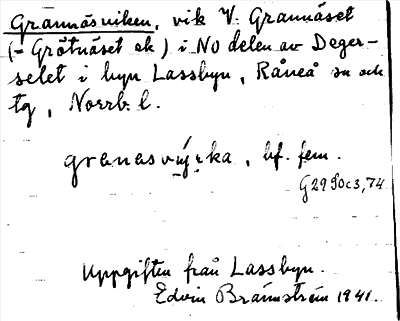 Grannäsviken, vik V. Grannäset
(= Grötnäset ek) i NO delen av Deger-
selet i byn Lassbyn, Råneå sn och
tg, Norrb. l.
granasvýrka, bf. fem.
Uppgiften från Lassbyn.
Edvin Brännström 1941.